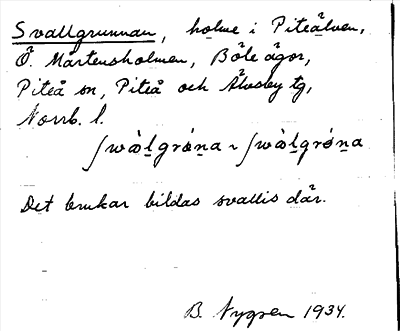 Svallgrunnan, holme i Piteälven,
Ö. Mårtensholmen, Böle ägor,
Piteå sn, Piteå och Älvsby tg,
Norrb. l.
Det brukar bildas svallis där.
B. Nygren 1934.